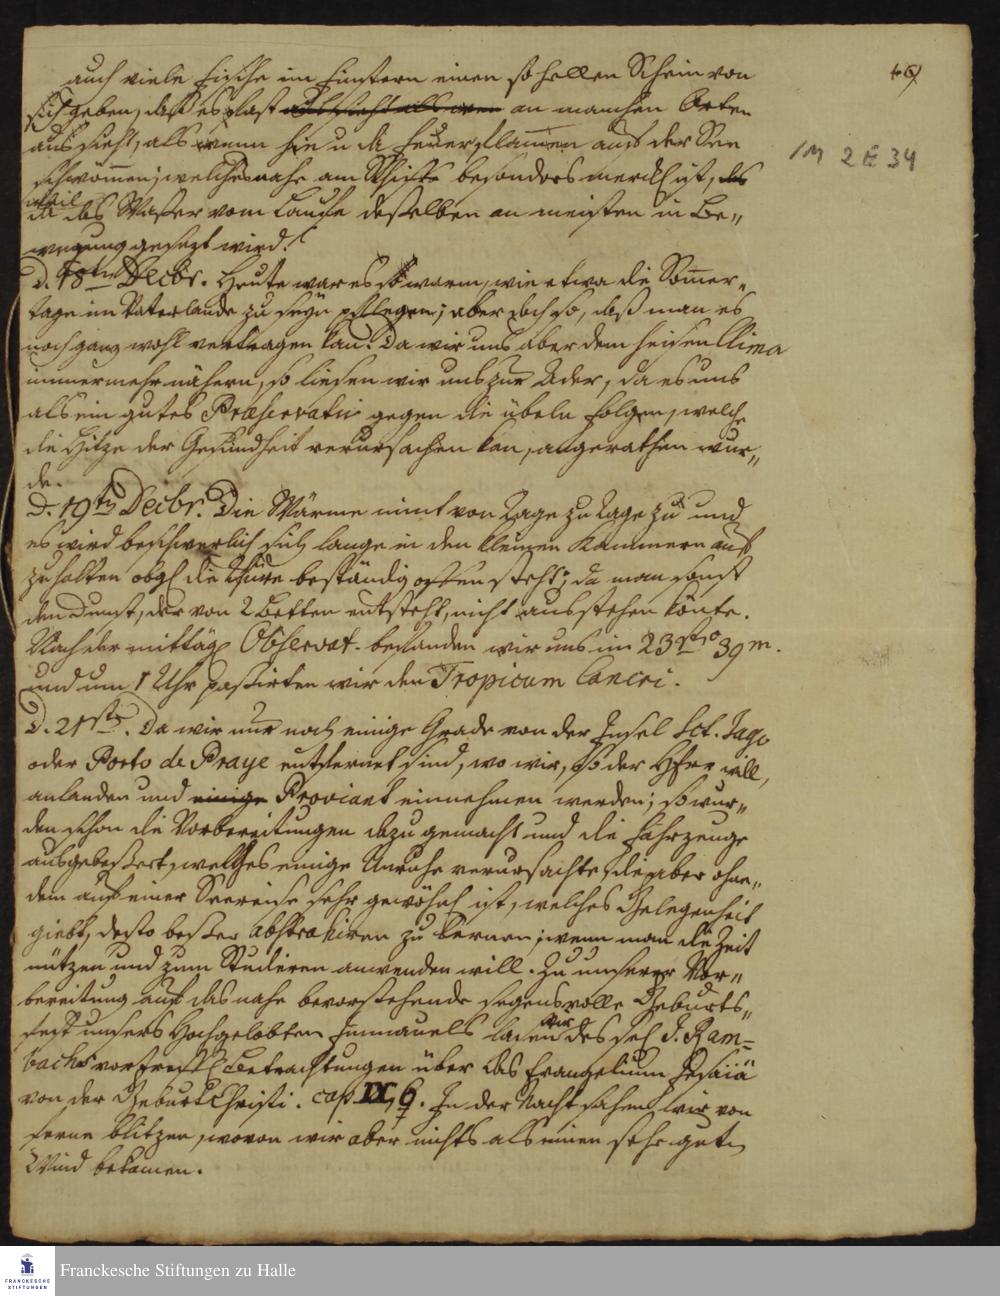 auch viele Fische im Finstern einen so hellen Schein von
sich geben, daß es fast an manchen Orten
aussieht, als wenn hie u da Feuerflam̄en auß der See
schwöm̄en; welches nahe am Schiffe besonders merckl ist,
weil das Waßer vom Lauffe deßelben am meisten in Be„
wegung gesezt wird.
D. 18ten Decbr. Heute war es so warm, wie etwa die Som̄er„
tage im Vaterlande zu seyn pflegen; aber doch so, daß man es
noch ganz wohl vertragen kan. Da wir uns aber dem heisen Clima
immermehr nähern, so liesen wir uns zur Ader, da es uns
als ein gutes Præservativ gegen die übeln Folgen, welche
die Hitze der Gesundheit verursachen kan, angerathen wur„
de.
D. 19ten Decbr. Die Wärme nimt von Tage zu Tage zu und
es wird beschwerlich sich lange in den kleinen Kammern auf
zuhalten obgl die Thüre beständig offen steht; da man sonst
den Dunst, der von 2 Betten entsteht, nicht ausstehen könte.
Nach der mittägl Observat. befanden wir uns im 23sten ° 39 m.
und um 1 Uhr passirten wir den Tropicum Cancri.
D. 21ste. Da wir nur noch einige Grade von der Insel Sct. Jago
oder Porto de Praye entfernet sind, wo wir, so der HErr will,
anlanden und einige Proviant einnehmen werden; so wur„
den schon die Vorbereitungen dazu gemacht und die Fahrzeuge
ausgebeßert, welches einige Unruhe verursachte, die aber ohne„
dem auf einer Seereise sehr gewöhnl ist, welches Gelegenheit
giebt, desto beßer abstrahiren zu lernen; wenn man die Zeit
nützen und zum Studieren anwenden will. Zu unserer Vor„
bereitung auf das nahe bevorstehende segensvolle Geburts„
fest unsers Hochgelobten Immanuels lasen wir des sel J. Ram=
bachs vortreffl Betrachtungen über das Evangelium Jesaiä
von der Geburt Christi. cap IX, 6. In der Nacht sahen wir von
ferne blitzen, wovon wir aber nichts als einen sehr guten
Wind bekamen.
1M 2 E 34
Franckesche Stiftungen zu Halle
FRANCKESCHE
STIFTUNGEN